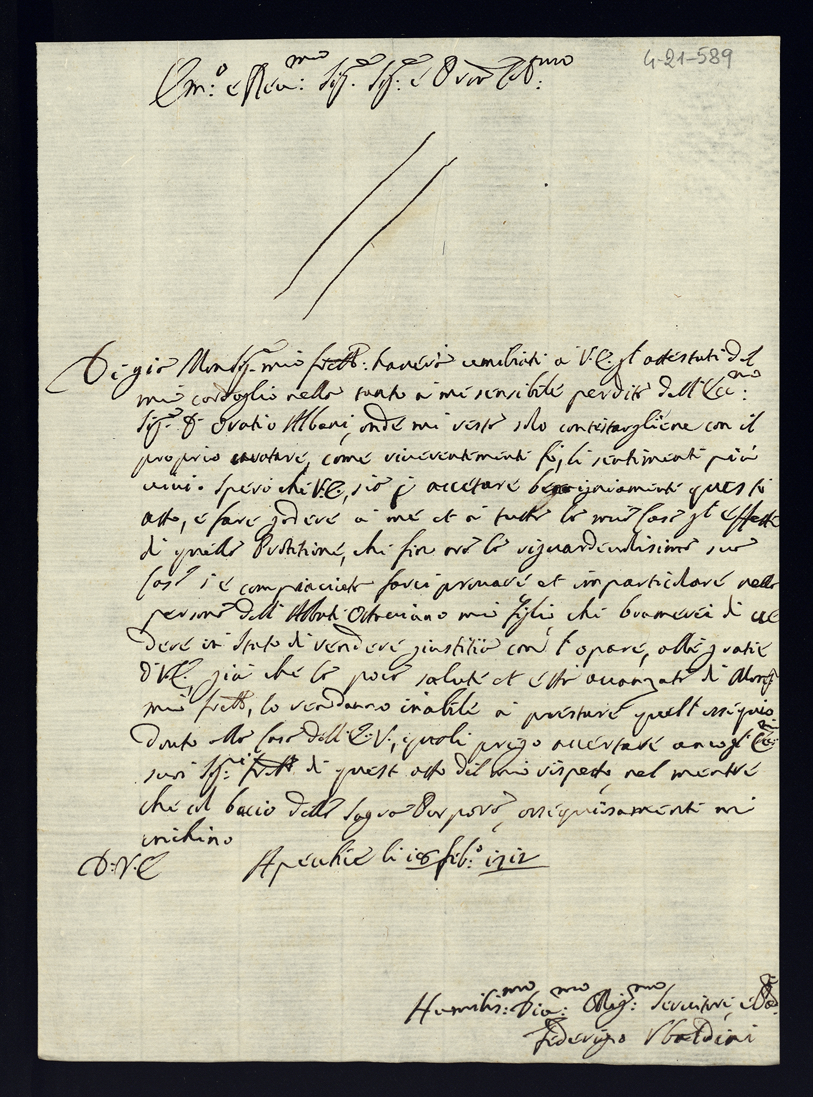 4-21-589
Em.º e Reu.mo Sig.e Sig.e e Pron Col.mo
Di già Monsig.e mio fratt.º haverà umiliati a V.E. gl'attestati del
mio cordoglio nella tanto a me sensibile perdita dell'Ecc.mo
Sig.e D. Oratio Albani, onde mi resta solo contestargliene con il
proprio carattere, come riverentemente fò, li sentimenti più
vivi. Spero che V.E. sia p accettare benignamente questo
atto, e fare godere a me et a tutta la mia Casa gl'effetti
di quella Protetione, che fin ora la riguardevolissima sua
Casa s'è compiaciuta farci provare et in particolare nella
persona dell'Abbate Ottaviano mio figlio, che bramerei di ve
dere in stato di rendere giustitia con l'opere, alle gratie
di V.E., già che la poca salute et età avanzata di Monsig.e
mio fratt.º, lo rendanno inabile a prestare quell'ossequio
dovuto alla Casa dell'E.V., quali prego accertare anco gl'Ecc.mi
suoi Sig.ri fratt.i di quest'atto del mio rispetto, nel mentre
che col bacio della Sagra Porpora, ossequiosamente mi
inchino
D. V. E. Apecchie li 18 feb.º 1712
Humilis.mo Diu.mo Oblig.mo Servitore, e
Federigo Ubaldini